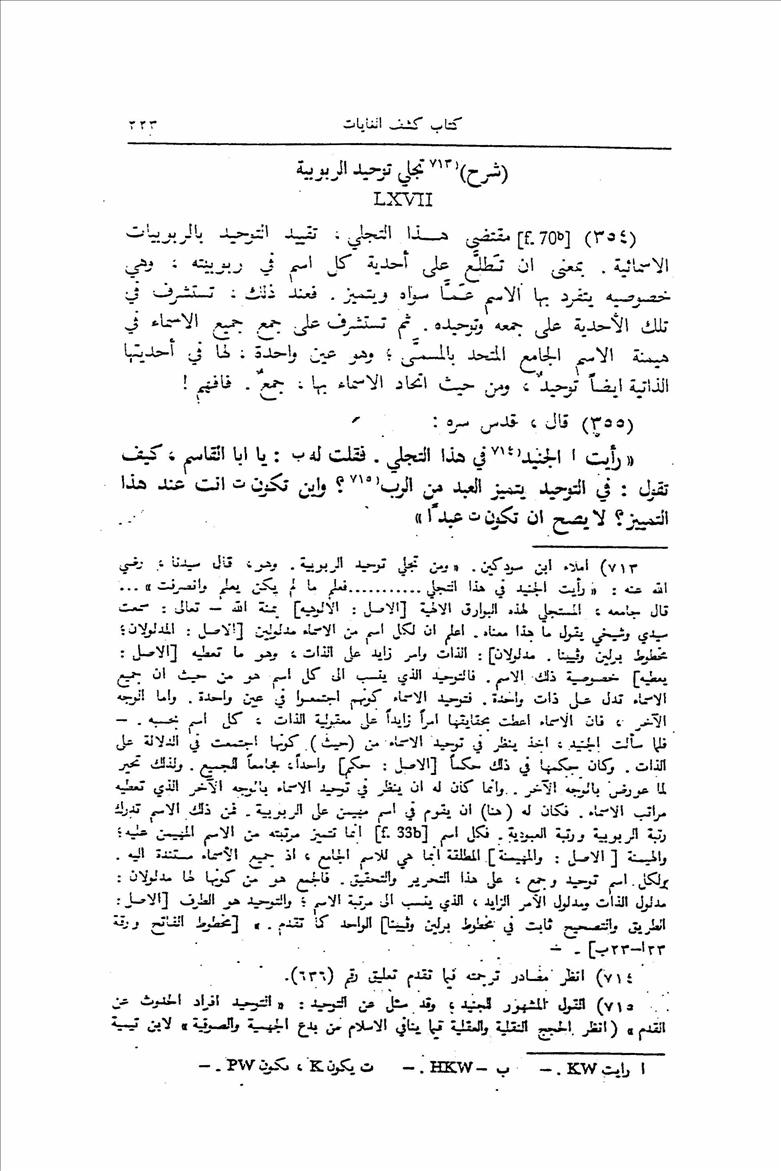 كتاب كشف الغايات ٢٢٣
(شرح)٧١٣) تجلي توحيد الربوبية
LXVII
(٣٥٤) [f. 70b] مقتضى هـذا التجلي، تقييد التوحيد بالربوبيات
الاسمائية . بمعنى ان تَطلَّع على أحدية كل اسم في ربوبيته ، وهي
خصوصيه يتفرد بها الاسم عَمَّا سواه ويتميز . فعند ذلك ، تستشرف في
تلك الأحدية على جمعه وتوحيده . ثم تستشرف على جمع جميع الاسماء في
هيمنة الاسم الجامع المتحد بالمسمَّى ؛ وهو عين واحدة ، لها في أحديتها
الذاتية ايضاً توحيدٌ ، ومن حيث اتحاد الاسماء بها ، جمعٌ . فافهم !
(٣٥٥) قال ، قدس سره :
« رأيت ا الجنيد٧١٤) في هذا التجلي . فقلت له ب : يا ابا القاسم ، كيف
تقول : في التوحيد يتميز العبد من الرب٧١٥) ؟ واين تكون ت انت عند هذا
التمييز؟ لا يصح ان تكون ت عبدًا »
٧١٣) املاء ابن سودكين. « ومن تجلي توحيد الربوبية . وهو، قال سيدنا ، رضي
الله عنه : « رأيت الجنيد في هذا التجلي ...........فعلم ما لم يكن يعلم وانصرفت » ...
قال جامعه ، المستجلي لهذه البوارق الالهية [الاصل : الالوهيه] بمنة الله – تعالى : سمعت
سيدي وشيخي يقول ما هذا معناه . اعلم ان لكل اسم من الاسماء مدلولين [الاصل : المدلولان؛
مخطوط برلين وڤيينا . مدلولان] : الذات وامر زايد على الذات ، وهو ما تعطيه [الاصل :
يعطيه] خصوصية ذلك الاسم . فالتوحيد الذي ينسب الى كل اسم هو من حيث ان جميع
الاسماء تدل عـلى ذات واحدة . فتوحيد الاسماء كونهم اجتمعوا في عين واحدة . واما الوجه
الآخر ، فان الاسماء اعطت بحقايقها امراً زايداً على معقولية الذات ، كل اسم بحسبه . –
فلما سألت الجنيد ، اخذ ينظر في توحيد الاسماء من (حيث) كونها اجتمعت في الدلالة على
الذات . وكان حكمها في ذلك حكماً [الاصل : حكم] واحداً، مجامعاً للجميع . ولذلك تحير
لما عورض بالوجه الآخر . وانما كان له ان ينظر في توحيد الاسماء بالوجه الآخر الذي تعطيه
مراتب الاسماء . فكان له (هنا) ان يقوم في اسم مهيمن على الربوبية . فمن ذلك الاسم تدرك
رتبة الربوبية ورتبة العبودية . فكل اسم [f. 33b] انما تتميز مرتبته من الاسم المهيمن عليه؛
والهيمنة [ الاصل : والمهيمنة] المطلقة انما هي للاسم الجامع ، اذ جميع الأسماء مستندة اليه .
ولكل اسم توحيد وجمع ، على هذا التحرير والتحقيق . فالجمع هو من كونها لها مدلولان :
مدلول الذات ومدلول الأمر الزايد ، الذي ينسب الى مرتبة الاسم ؛ والتوحيد هو الطرف [الاصل :
الطريق والتصحيح ثابت في مخطوط برلين وڤيينا] الواحد كما تقدم . » [مخطوط الفاتح ورقة
٣٣ا–٣٣ب] . –
٧١٤) انظر مصادر ترجمته فيما تقدم تعليق رقم (٦٣٦).
٧١٥) القول المشهور للجنيد، وقد سئل عن التوحيد : « التوحيد افراد الحدوث عن
القدم » (انظر الحجج النقلية والعقلية فيما ينافي الاسلام من بدع الجهمية والصوفية » لابن تيمية
ا رايت KW . – ب – HKW . – ت يكون K ، مكون PW . –